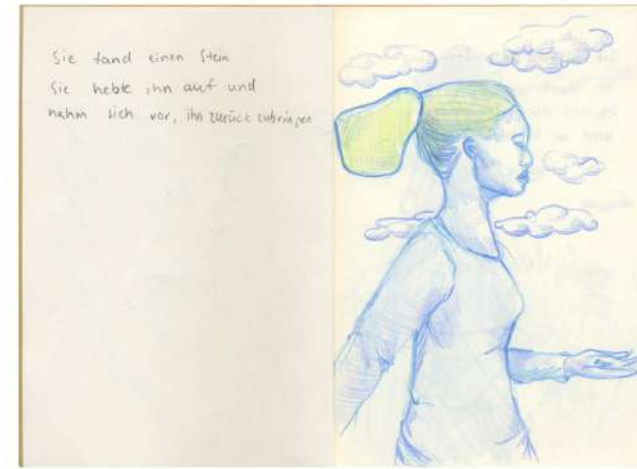 Sie fand einen Stein
Sie hebte ihn auf und
nahm sich vor, ihn zurück zubringen